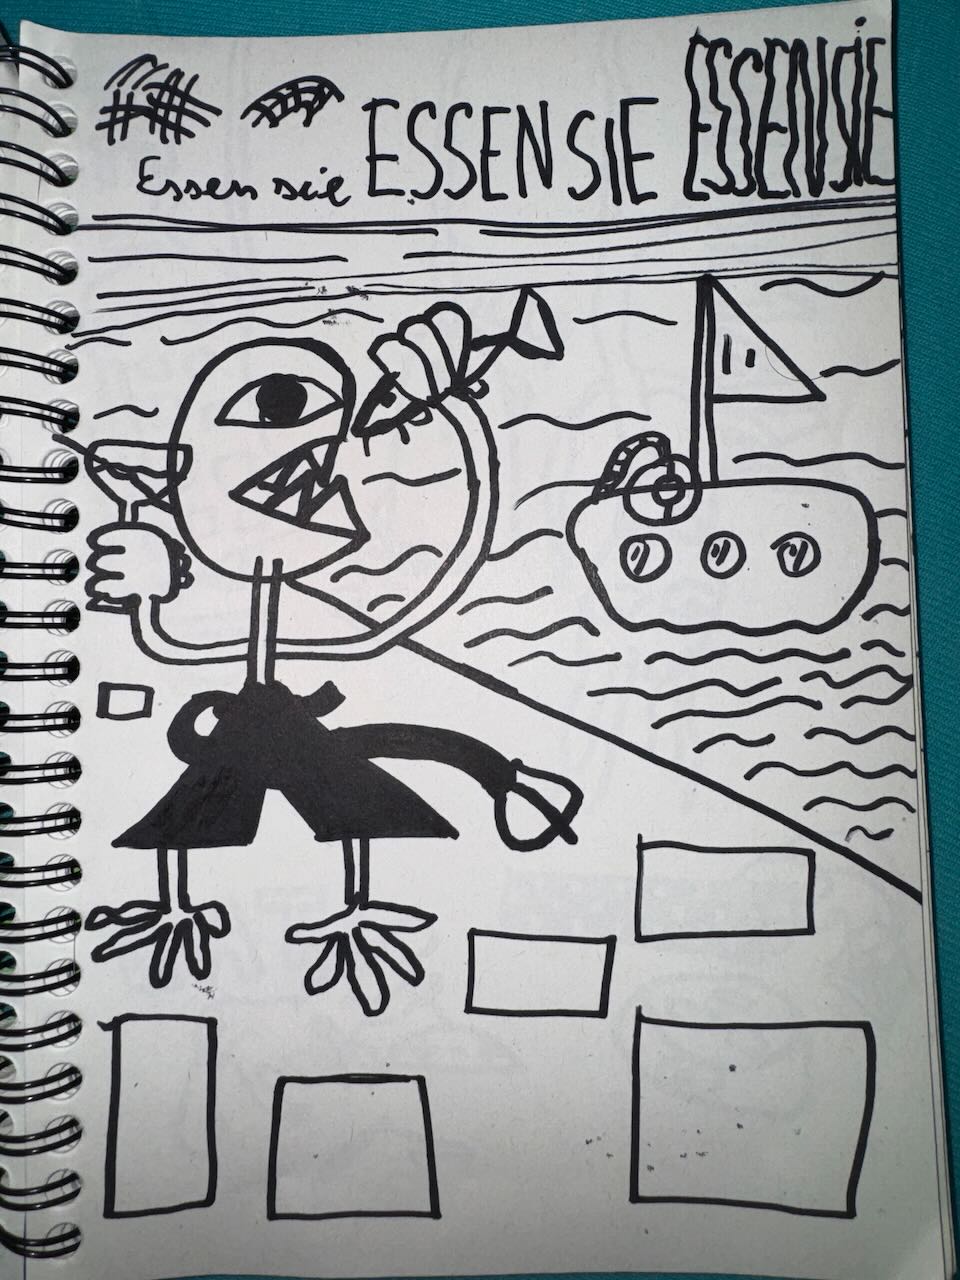 Essen sie ESSEN SIE ESSEN SIE